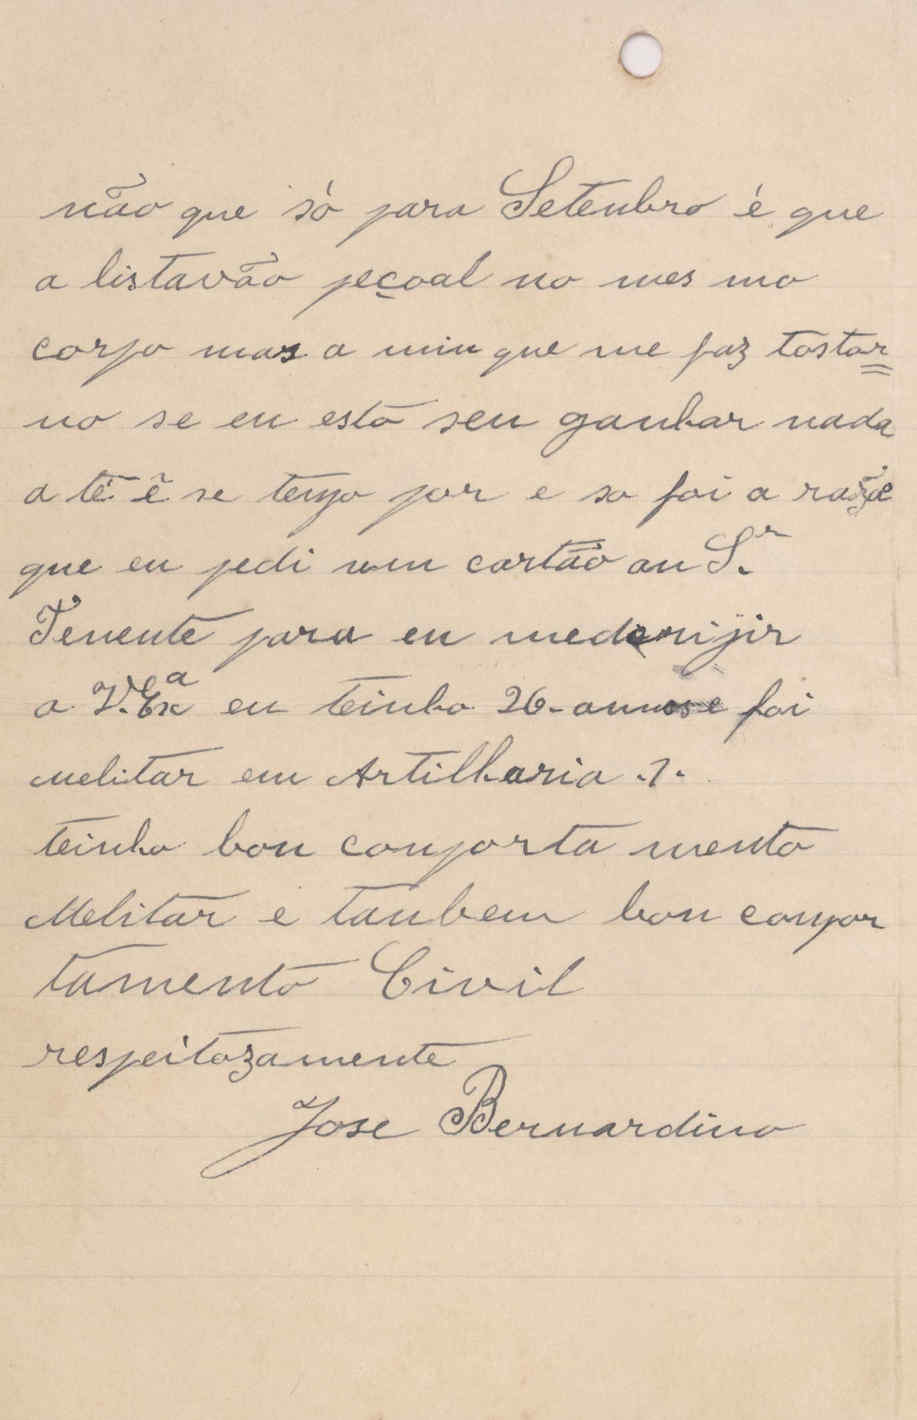 não que só para Setenbro é que
a listavão peçoal no mes mo
corpo mas a min que me faz tostor
no se eu estó sen ganhar nada
a té ê se tenpo por e so foi a
que eu pedi um cartão au Sr.
Tenente para eu mederijir
a V.Exa eu teinho 26-annos e foi
melitar em Artilharia .1.
teinho bon conporta mento
Melitar e tanbem bon conpor
tamento Civil
respeitozamente
Jose Bernardino